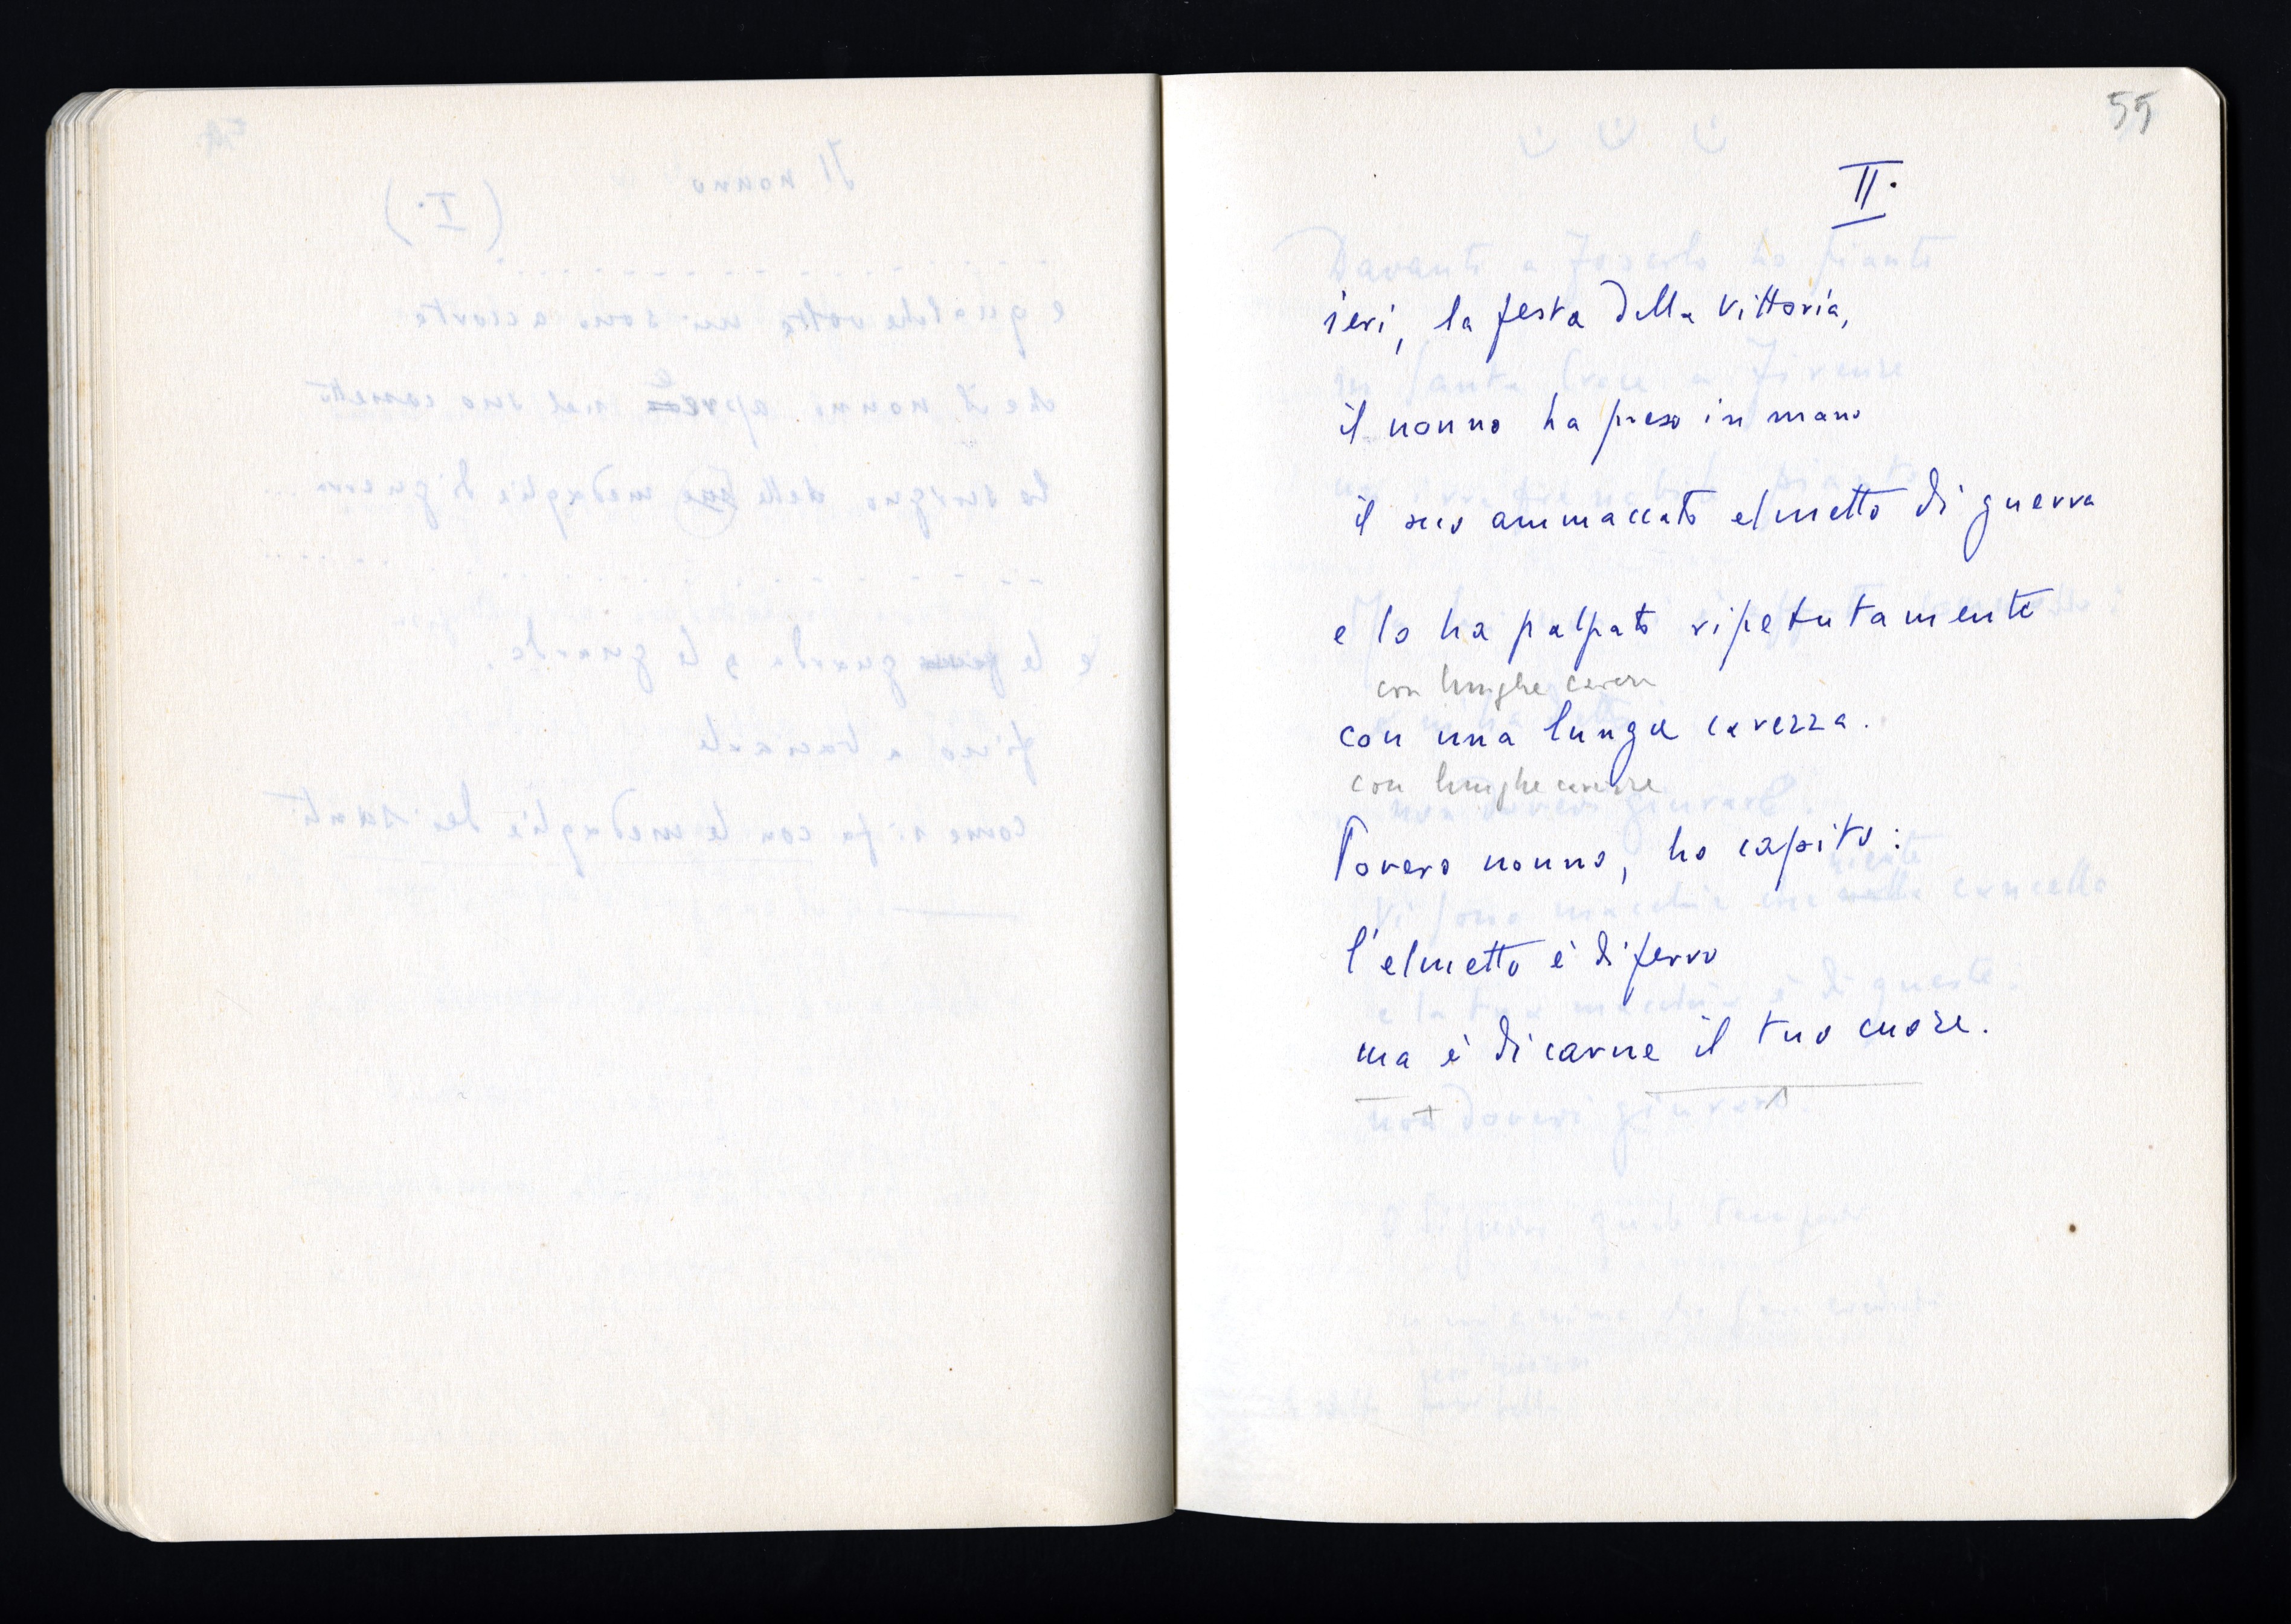 55
II.
ieri, la festa della vittoria,
il nonno ha preso in mano
il suo ammaccato elmetto di guerra
e lo ha palpato ripetutamente
con lunghe
con una lunga carezza.
con lunghe carezze
Povero nonno, ho capito:
l'elmetto è di ferro
ma è di carne il tuo cuore.